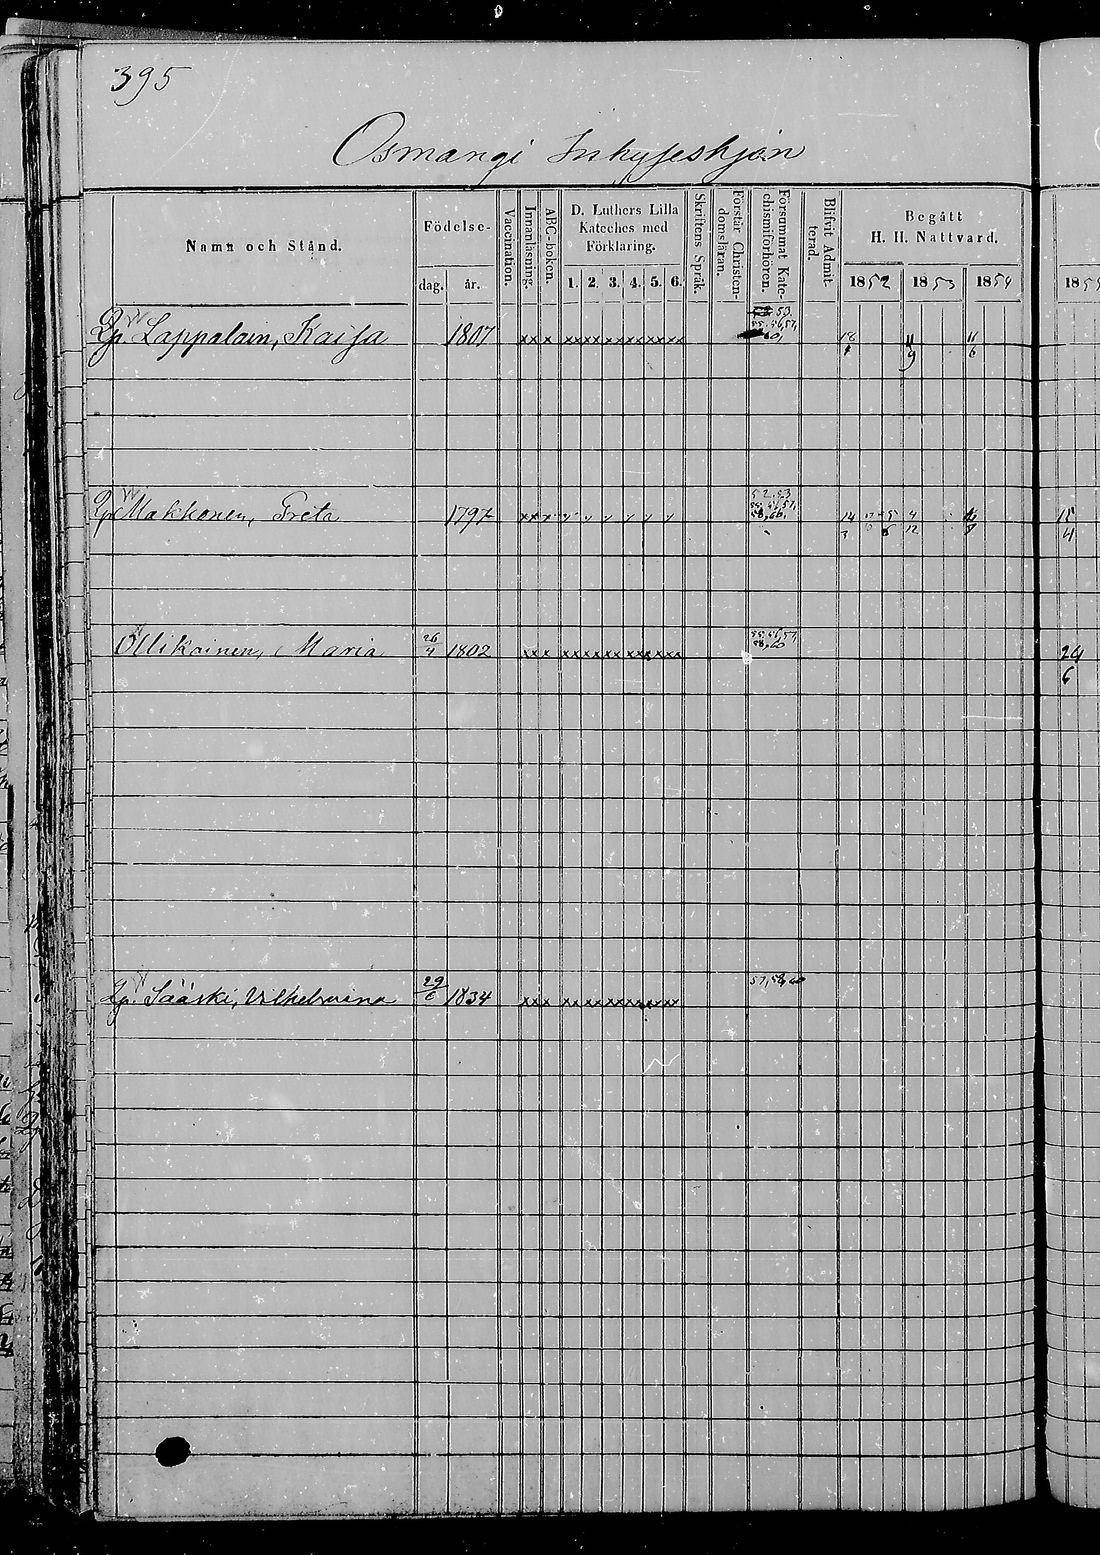 395
Osmangi Inhyseshjon
Namn och Stånd.
Födelse-
dag. år.
Vaccination.
Innanläsning.
ABC-boken.
D. Luthers Lilla
Kateches med
Förklaring.
1. 2. 3. 4. 5. 6.
Skriftens Språk.
Förstår Christen-
domsläran.
Försummat Kate-
chismiförhören.
Blifvit Admit-
terad.
Begått
H. H. Nattvard.
1852 1853 1854
53,
55, 56, 57,
60,
Lappalain, Kaisa 1807 xxx xxxxxxxxxxxx 18 11 11
9 6
52, 53,
Makkonen, Greta 1797 14 4
3 12
15
4
55, 56, 57,
58, 60
Ollikainen, Maria 26/4 1802 xxx xxxxxxxxxxxx
24
6
57, 58, 60
Sääski, Vilhelmina 29/6 1834 xxx xxxxxxxxxxxx